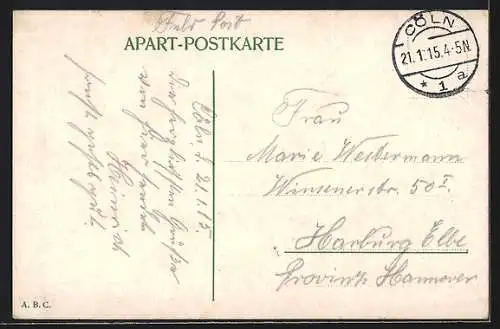 Feld Post
APART-POSTKARTE
CÖLN
21.1.15.4-5N.
* 1 a
Cöln, d. 21.1.15
Die herzlichsten Grüße
von
Heinrich
Frau
Marie Westermann
Winsenerstr. 50 I
Harburg Elbe
Provinz Hannover
A. B. C.